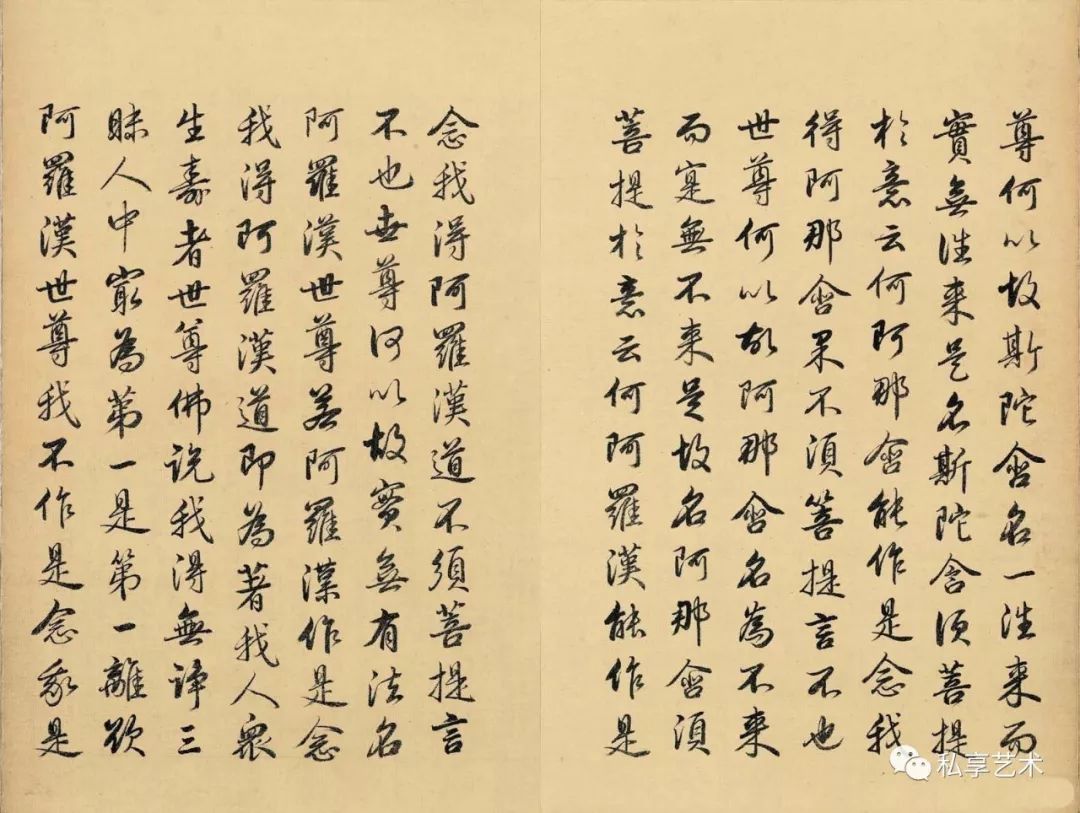 尊何以故斯陀含名一洼来而
實無洼来是名斯陀含須菩提
扵意云何阿那含能作是念我
得阿那含果不須菩提言不也
世尊何以故阿那含名為不来
而寔無不来是故名阿那含須
菩提扵意云何阿羅漢能作是
念我得阿羅漢道不須菩提言
不也世尊何以故實無有法名
阿羅漢世尊若阿羅漢作是念
我得阿羅漢道即為著我人衆
生壽者世尊佛說我得無諍三
昧人中冣為第一是第一離欲
阿羅漢世尊我不作是念我是
私享艺术